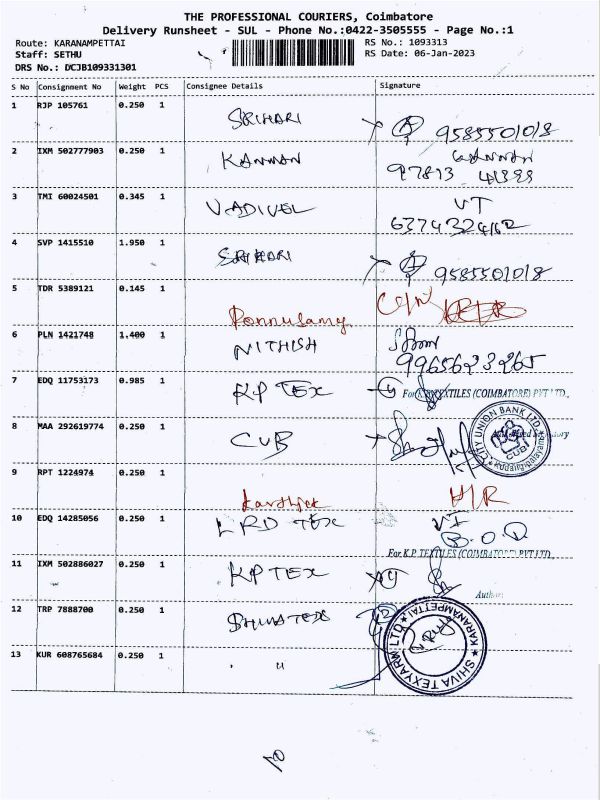 THE PROFESSIONAL COURIERS, Coimbatore
Delivery Runsheet - SUL - Phone No.:0422-3505555 - Page No.:1
Route: KARANAMPETTAI RS No.: 1093313
Staff: SETHU RS Date: 06-Jan-2023
DRS No.: DCJB109331301
S No Consignment No Weight PCS Consignee Details Signature
1 RJP 105761 0.250 1 SRIHARI 9585501018
2 IXM 502777903 0.250 1 KANNAN
97813 41399
3 TMI 60024501 0.345 1 VADIVEL VT
6374324162
4 SVP 1415510 1.950 1 SRIHARI 9585501018
5 TDR 5389121 0.145 1 Ponnusamy
6 PLN 1421748 1.400 1 NITHISH
9965623265
7 EDQ 11753173 0.985 1 KP TEX For K.P. TEXTILES (COIMBATORE) PVT LTD.,
8 MAA 292619774 0.250 1 CUB CITY UNION BANK LTD. CUB
9 RPT 1224974 0.250 1 Karthick H/R
10 EDQ 14285056 0.250 1 LRD TEX VT
B.O.D
For K.P. TEXTILES (COIMBATORE) PVT LTD.,
11 IXM 502886027 0.250 1 KP TEX
12 TRP 7888700 0.250 1 SHIVA TEX SHIVA TEXYARN LTD KARANAMPETTAI
13 KUR 608765684 0.250 1 "